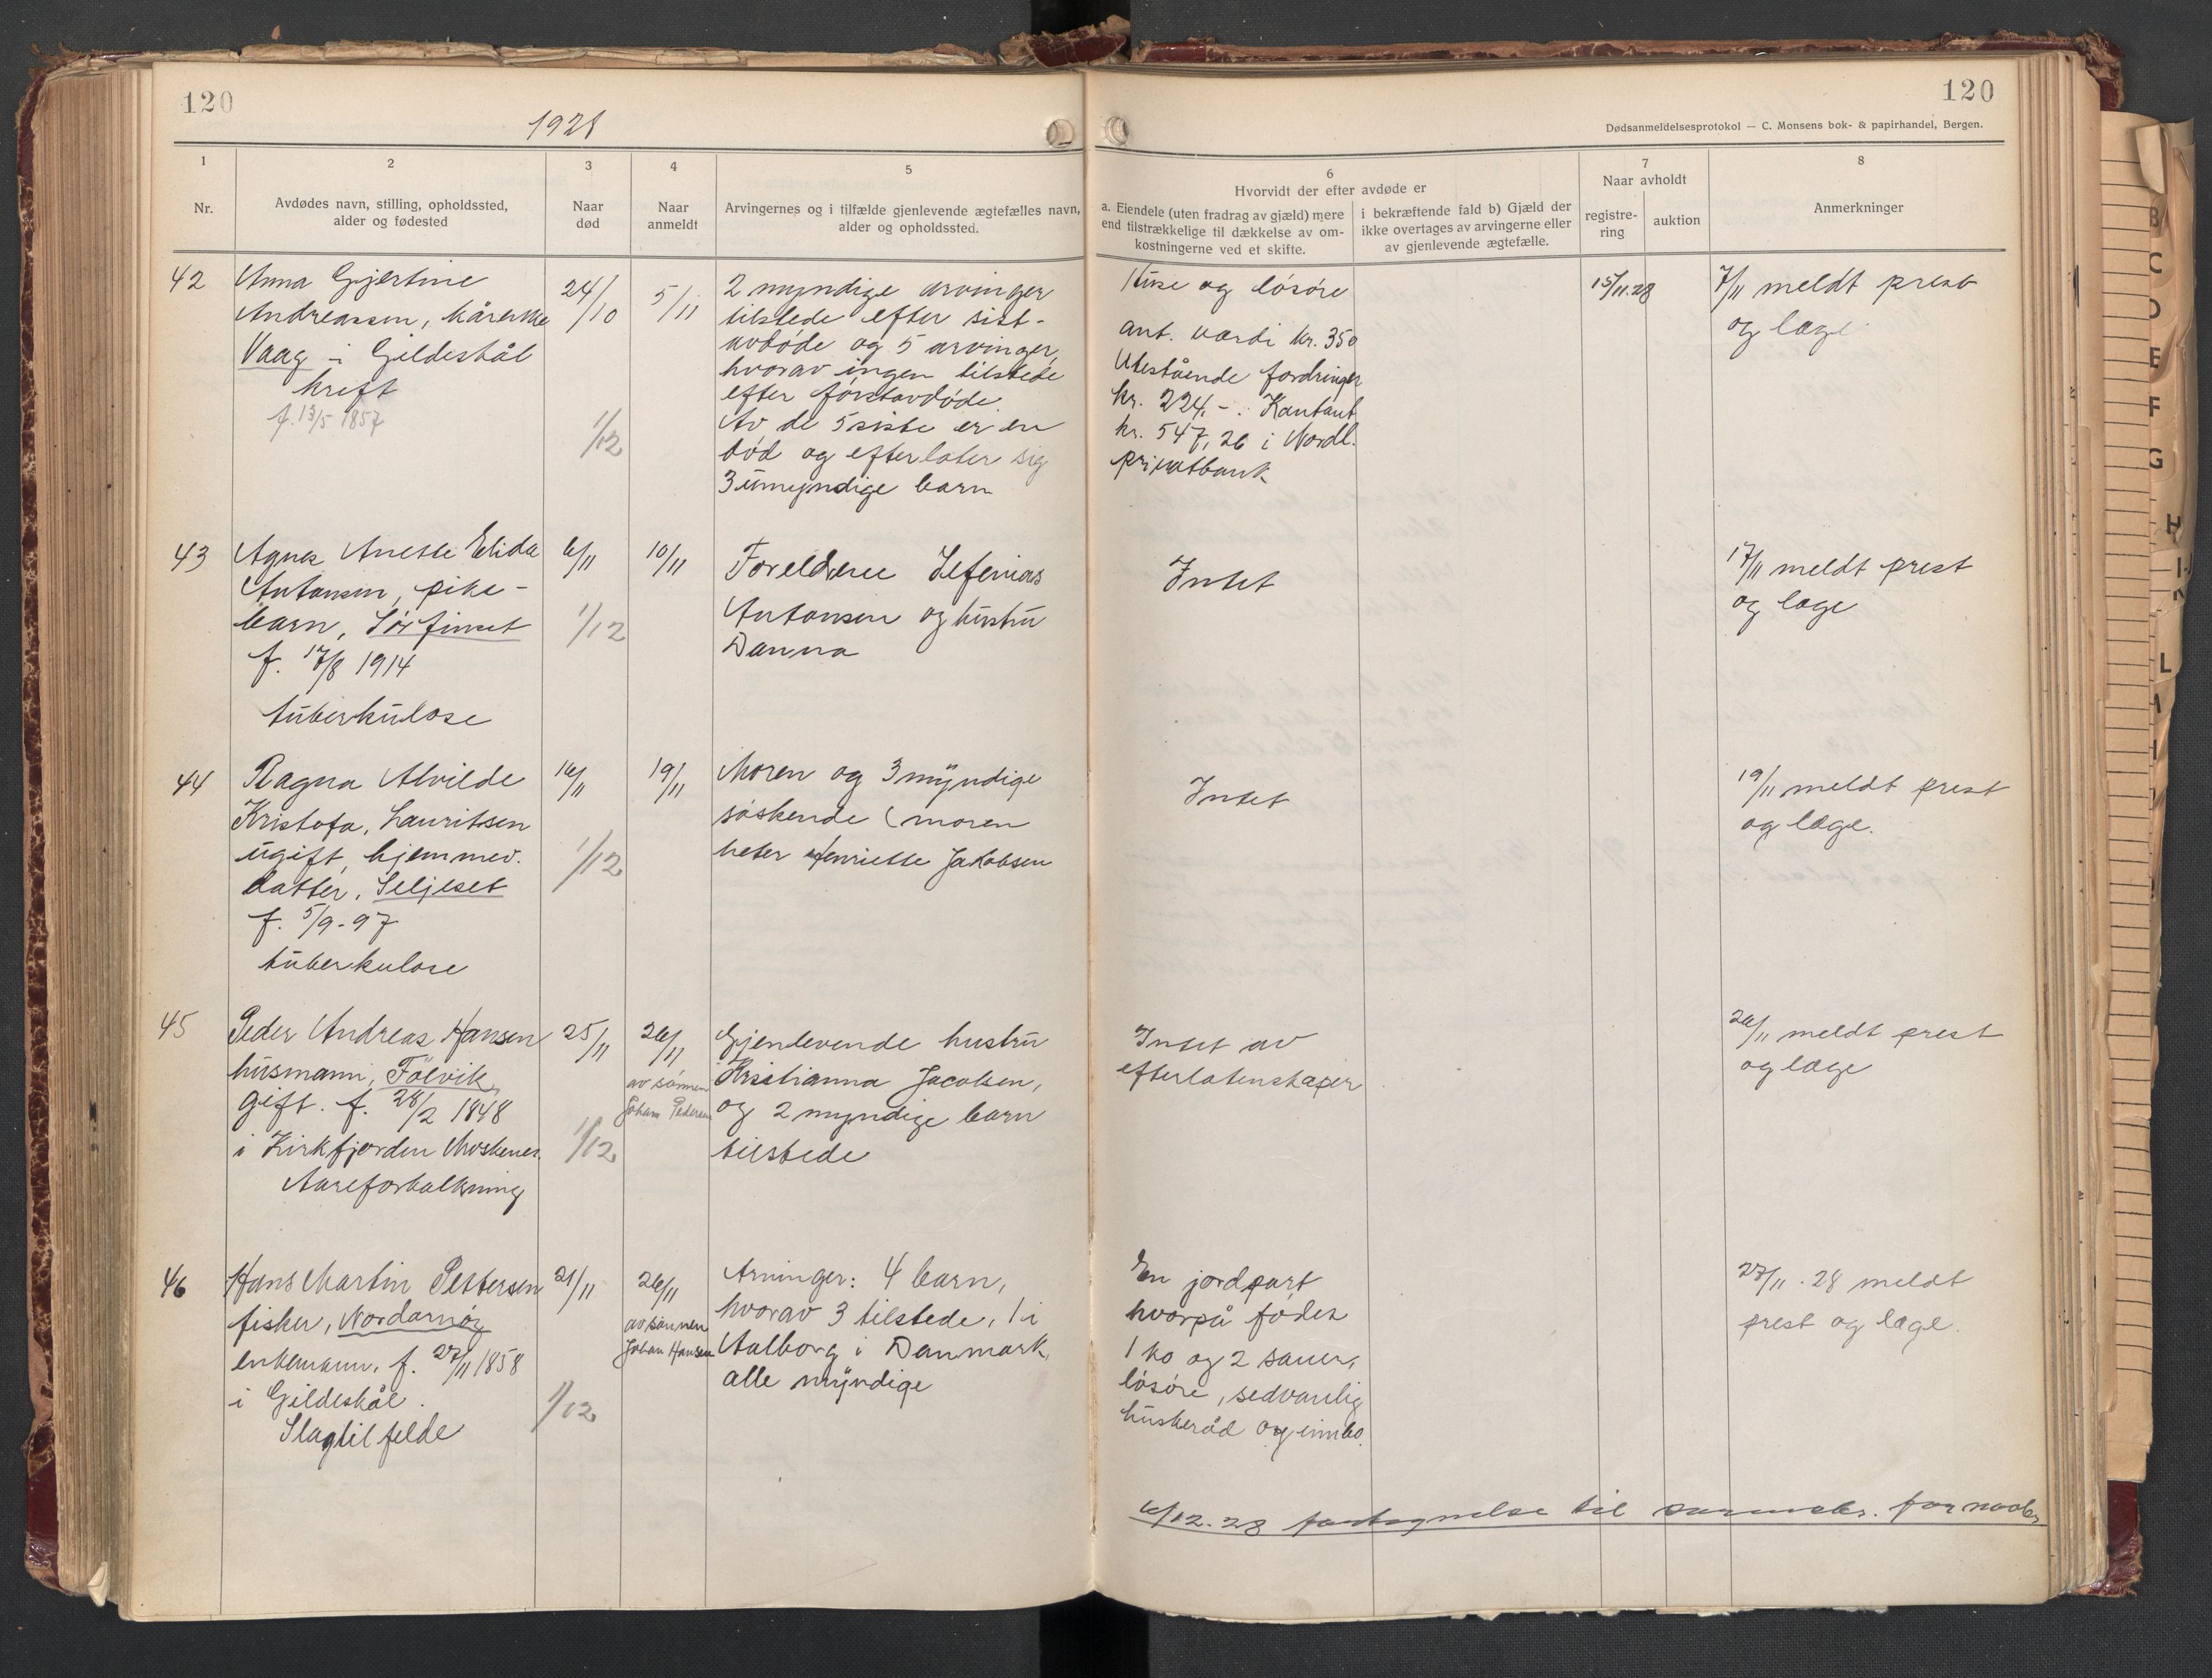 120
1928
120
Dødsanmeldelsesprotokol — C. Monsens bok- & papirhandel, Bergen.
1
2
3
4
5
6
7
8
Nr.
Avdødes navn, stilling, opholdssted,
alder og fødested
Naar
død
Naar
anmeldt
Arvingernes og i tilfælde gjenlevende ægtefælles navn,
alder og opholdssted.
Hvorvidt der efter avdøde er
a. Eiendele (uten fradrag av gjæld) mere
end tilstrækkelige til dækkelse av om-
kostningerne ved et skifte.
i bekræftende fald b) Gjæld der
ikke overtages av arvingerne eller
av gjenlevende ægtefælle.
Naar avholdt
registre-
ring
auktion
Anmerkninger
42
Anna Gjertine
Andreassen, kårenke
Vaag i Gildeskål
kreft
f. 13/5 1857
24/10
1/12
5/11
2 myndige arvinger
tilstede efter sist-
avdøde og 5 arvinger,
hvorav ingen tilstede
efter førstavdøde.
Av de 5 siste er en
død og efterlater sig
3 umyndige barn
Huse og løsøre
ant. værdi kr. 350
Utestående fordringer
kr. 224,-. Kontant
kr. 547,26 i Nordl.
privatbank
15/11.28
7/11 meldt prest
og læge
43
Agnes Anette Elida
Antonsen, pike-
barn, Sørfinset
f. 17/8 1914
tuberkulose
6/11
1/12
10/11
Foreldrene Sefenias
Antonsen og hustru
Danna
Intet
17/11 meldt prest
og læge
44
Ragna Alvilde
Kristofa, Lauritsen
ugift, hjemmev.
datter, Seljeset
f. 5/9-97
tuberkulose
16/11
1/12
19/11
Moren og 3 myndige
søskende (moren
heter Henriette Jakobsen
Intet
19/11 meldt prest
og læge.
45
Peder Andreas Hansen
husmann, Følvik
gift. f. 28/2 1848
i Kirkfjorden Moskenes.
Aareforkalkning
25/11
1/12
26/11
av sønnen
Johan Pedersen
Gjenlevende hustru
Kristianna Jacobsen,
og 2 myndige barn
tilstede
Intet av
efterlatenskaper
26/11 meldt prest
og læge
46
Hans Martin Pettersen
fisker, Nordarnøy
enkemann, f. 27/11 1858
i Gildeskål.
Slagtilfelde
21/11
1/12
26/11
av sønnen
Johan Hansen
Arvinger: 4 barn,
hvorav 3 tilstede, 1 i
Aalborg i Danmark,
alle myndige
En jordpart
hvorpå fødes
1 ko og 2 sauer,
løsøre, sedvanlig
huskeråd og innbo.
27/11.28 meldt
prest og læge.
6/12.28 til